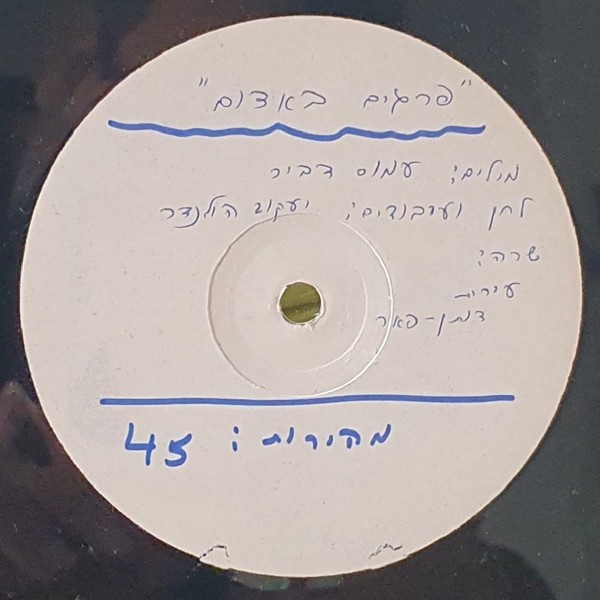 "פרגים באדום"
מילים: עמוס דביר
לחן ועיבודים: יעקב הולנדר
שרה:
עירית
דותן-פאר
מהירות: 45